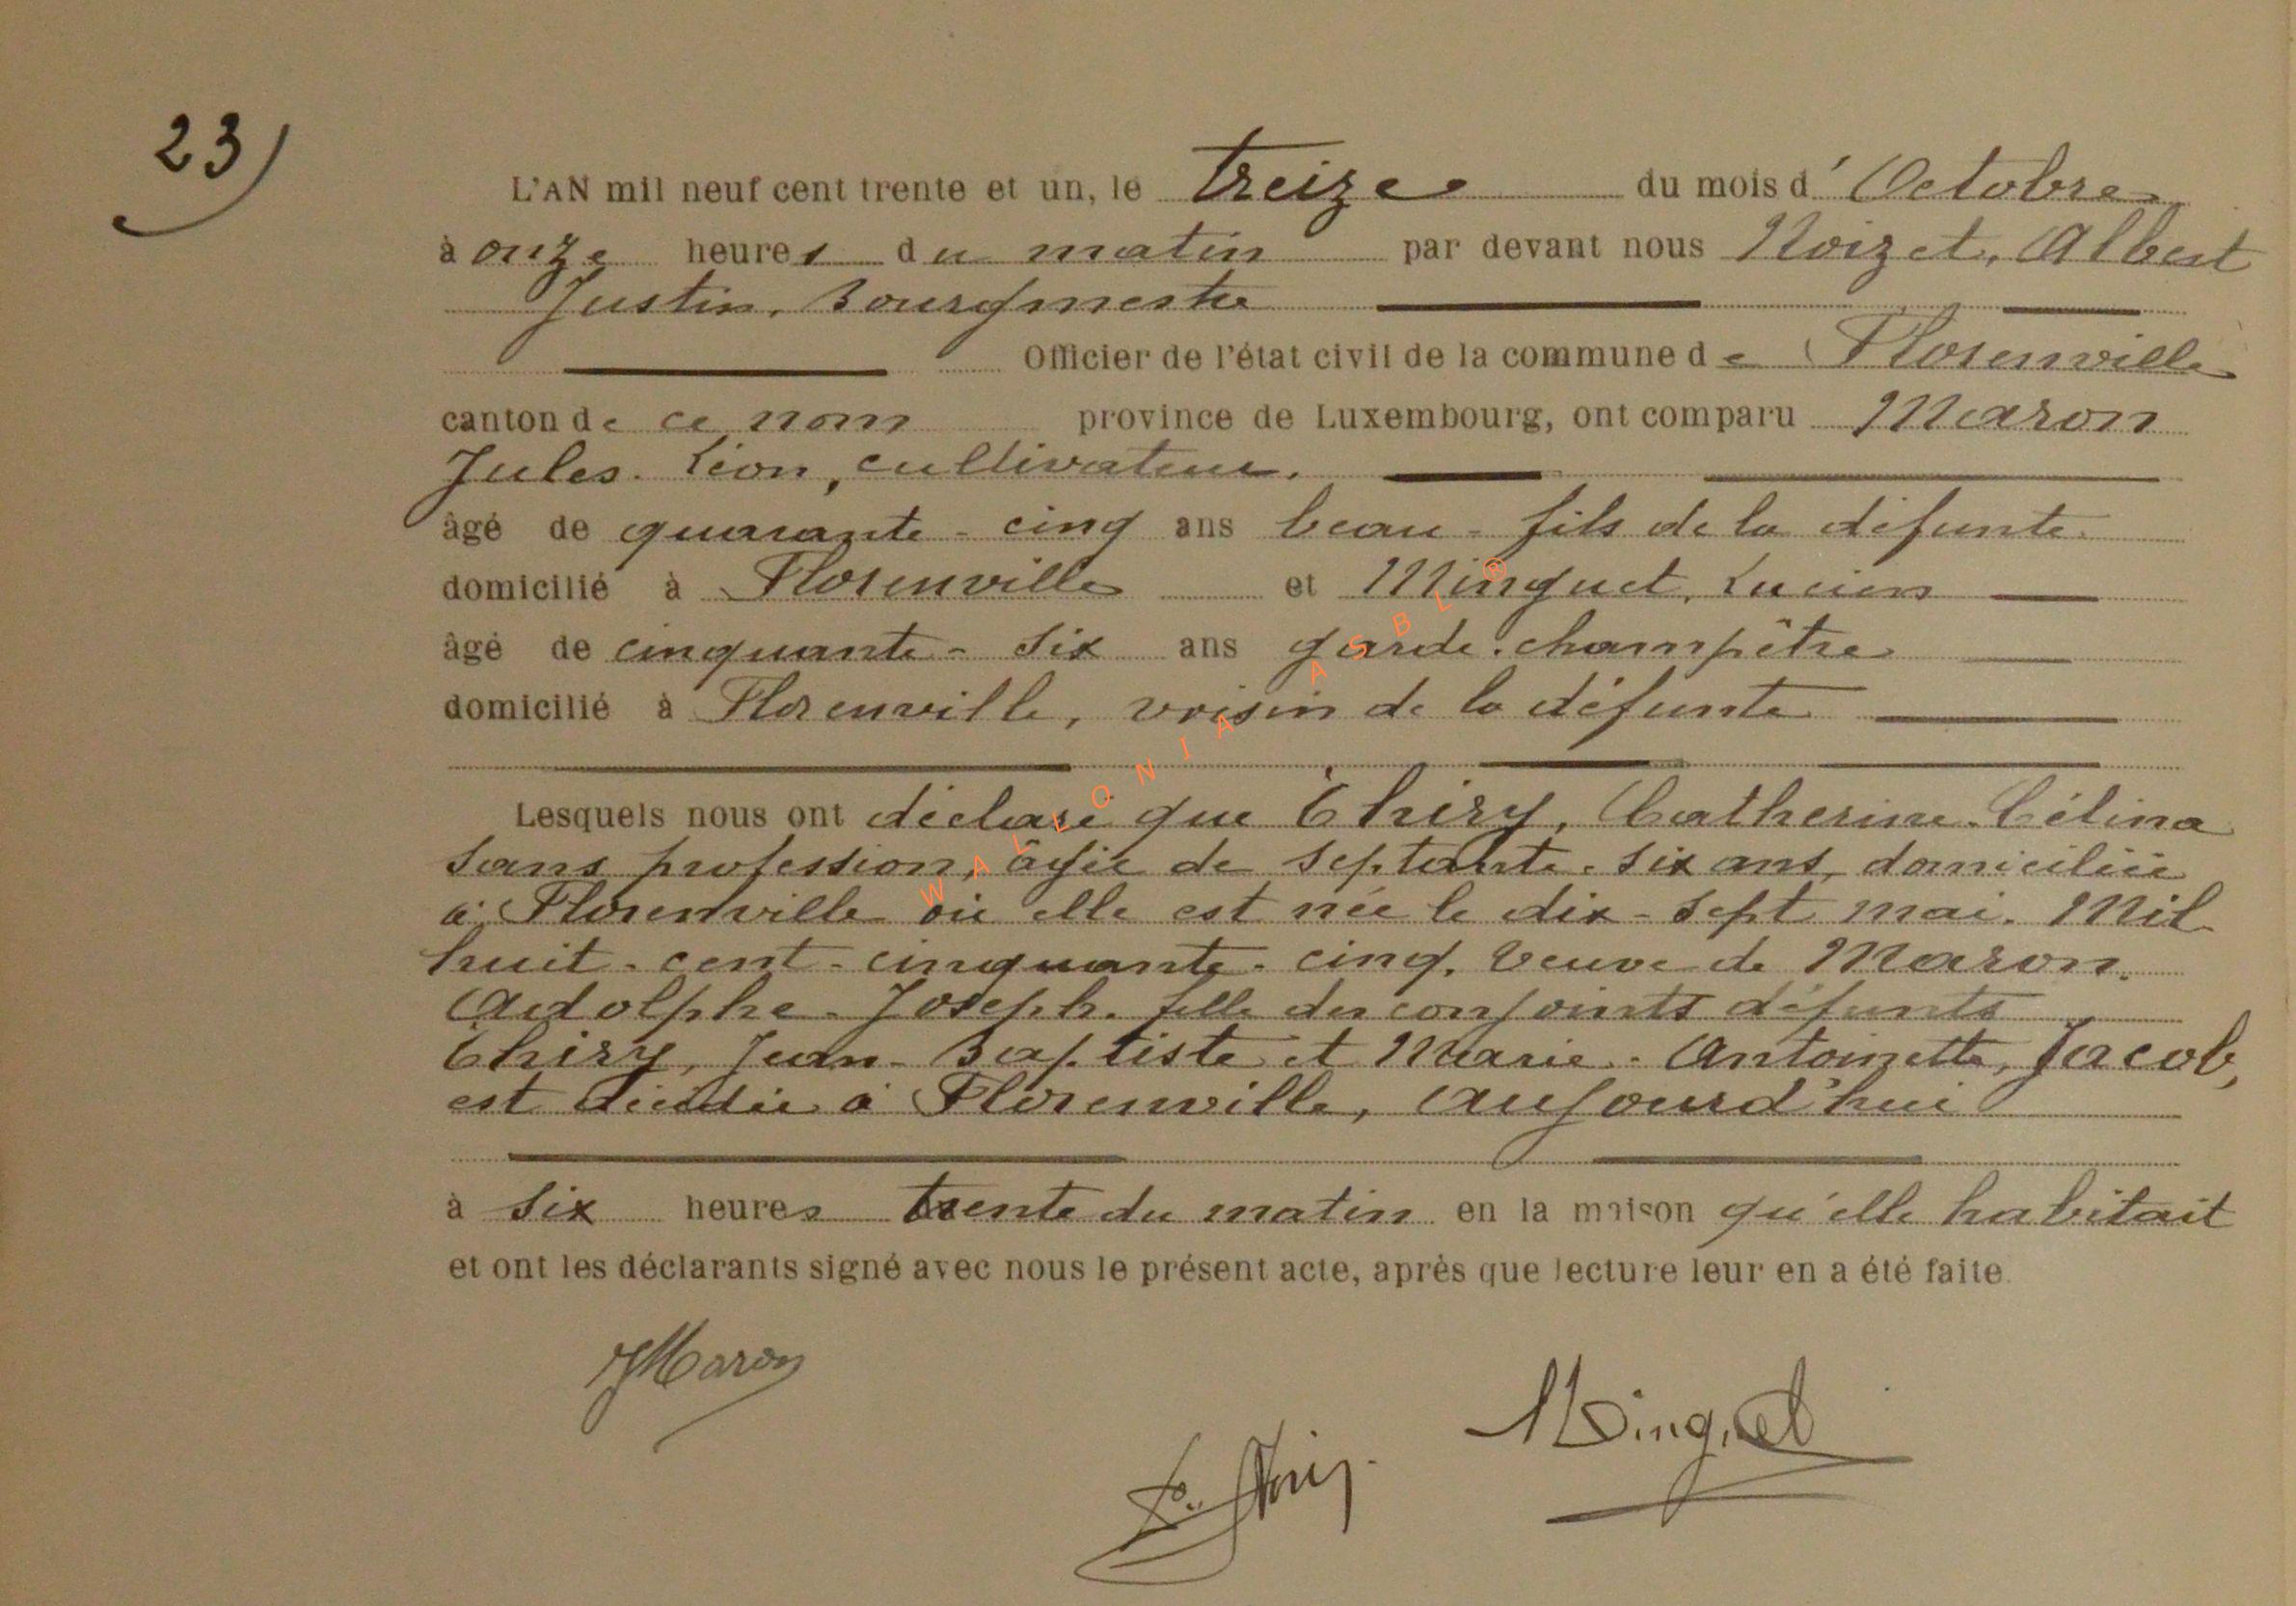 23)
L'AN mil neuf cent trente et un, le treize du mois d'Octobre
à onze heures du matin par devant nous Noizet, Albert
Justin, Bourgmestre
Officier de l'état civil de la commune de Florenville
canton de ce nom province de Luxembourg, ont comparu Maron
Jules-Léon, cultivateur.
âgé de quarante-cinq ans beau-fils de la défunte
domicilié à Florenville et Minguet, Lucien
âgé de cinquante-six ans garde-champêtre
domicilié à Florenville, voisin de la défunte
Lesquels nous ont déclaré que Thiry, Catherine-Célina
sans profession, âgée de septante-six ans, domiciliée
à Florenville où elle est née le dix-sept mai Mil
huit-cent-cinquante-cinq, veuve de Maron.
Adolphe-Joseph. fille des conjoints défunts
Thiry, Jean-Baptiste et Marie-Antoinette, Jacob,
est décédée à Florenville, aujourd'hui
à six heures trente du matin en la maison qu'elle habitait
et ont les déclarants signé avec nous le présent acte, après que lecture leur en a été faite.
JMaron
Minguet
WALLONIA ASBL ®